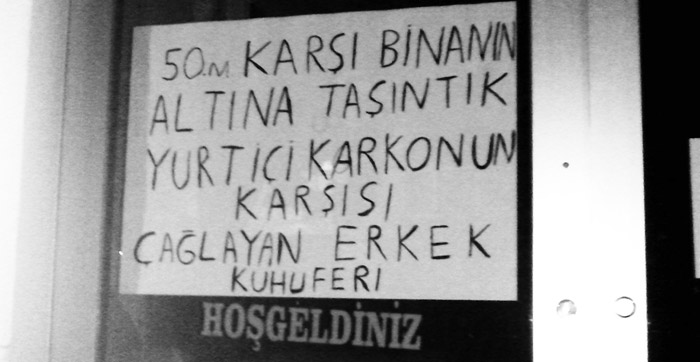 50.M KARŞI BİNANIN
ALTINA TAŞINTIK
YURTİÇİ KARKONUN
KARŞISI
ÇAĞLAYAN ERKEK
KUHUFERI
HOŞGELDİNİZ